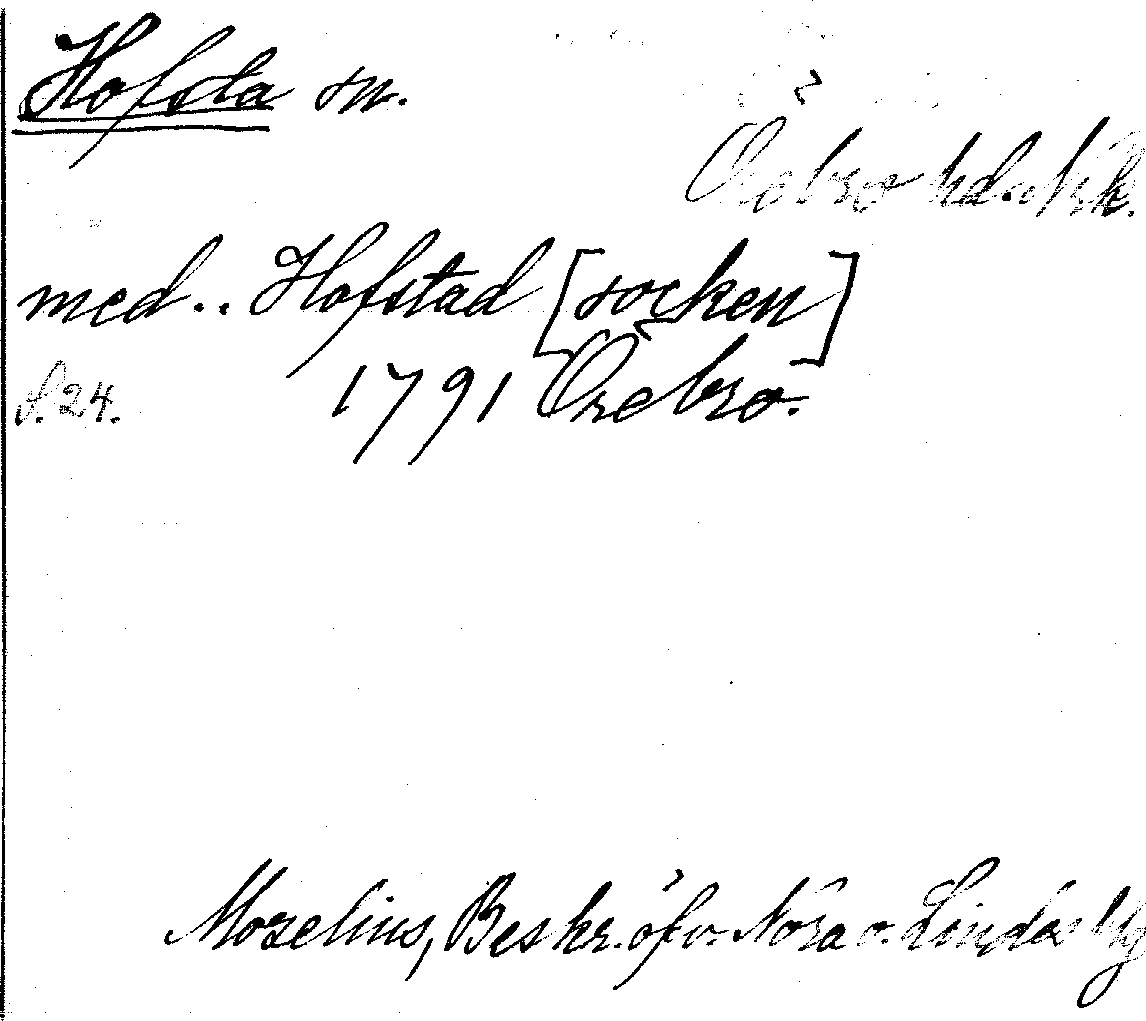 Hofsta sn.
Örebro hd. Nrk.
med.. Hofstad [socken]
S. 24. 1791 Örebro.
Moselius, Beskr. öfv. Nora o. Linde